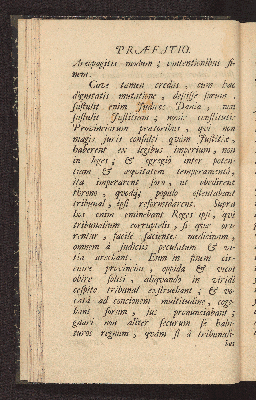 PRÆFATIO.
Areopagitis modum ; contentionibus fi-
nem.
Cave tamen credas , cum hac
dignitatis mutatione , desiisse forum .
sustulit enim Judices Dania , non
sustulit Justitiam ; novis constitutis
Provinciarum prætoribus , qui non
magis juris consulti quàm Justitiæ ,
haberent ex legibus imperium , non
in leges ; & egregiò inter poten-
tiam & æquitatem temperamentô ,
ita imperarent foro , ut obedirent
throno , quodq; populo ostentabant
tribunal , ipsi reformidarent. Supra
hos enim eminebant Reges ipsi , qui
tribunalium corruptelis , si quæ ori-
rentur , facilè facientes medicinam ,
omnem à judiciis peculatum & vi-
tia arcebant. Eum in finem cir-
cuire provincias , oppida & vicos
obire soliti , aliquando in viridi
cespite tribunal exstruebant ; & vo-
catâ ad concionem multitudine , coge-
bant forum , jus pronunciabant ;
gnari non aliter securum se habi-
turos regnum , quàm si à tribunali-
bus